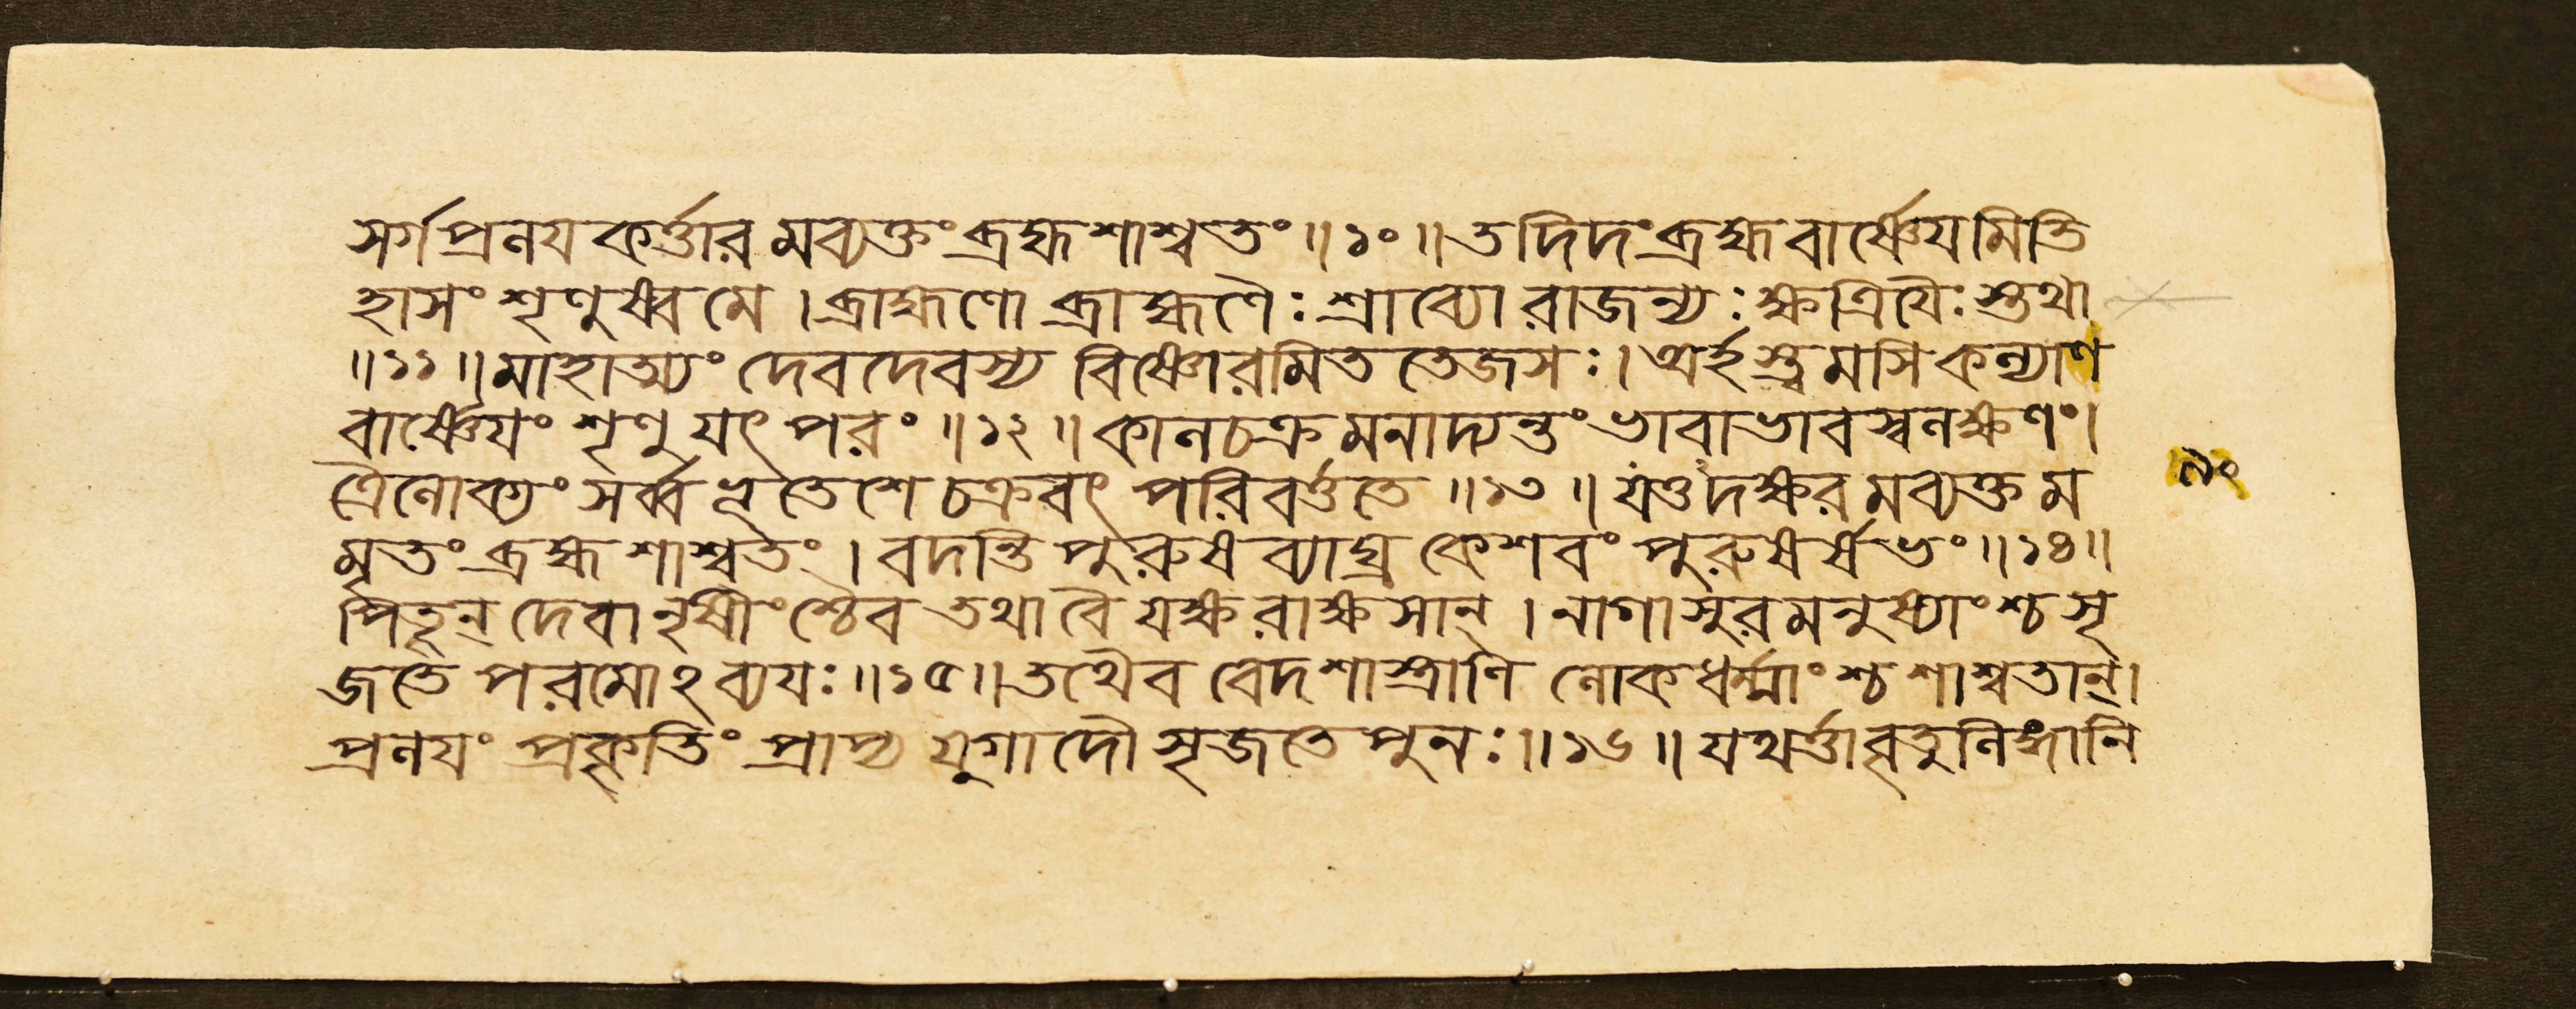 সর্গপ্রলযকর্ত্তারমব্যক্তং ব্রহ্মশাশ্বতং ॥ ১০ ॥ তদিদং ব্রহ্মবার্ষ্ণেযমিতি
হাসং শৃণুষ্ব মে । ব্রাহ্মণো ব্রাহ্মণৈঃ শ্রাব্যো রাজন্যঃ ক্ষত্রিযৈঃ স্তথা
॥ ১১ ॥ মাহাত্ম্যং দেবদেবস্য বিষ্ণোরমিত তেজসঃ । অর্হস্ত্বমসি কল্যাণ
বার্ষ্ণেযং শৃণু যৎ পরং ॥ ১২ ॥ কালচক্রমনাদ্যন্তং ভাবাভাবস্বলক্ষণং ।
ত্রৈলোক্যং সর্ব্বভূতেশে চক্রবৎ পরিবর্ত্ততে ॥ ১৩ ॥ যত্তদক্ষরমব্যক্তম
লং
মৃতং ব্রহ্মশাশ্বতং । বদন্তি পুরুষব্যাঘ্র কেশবং পুরুষর্ষভং ॥ ১৪ ॥
পিতৄন্ দেবানৃষীংশ্চৈব তথা বৈ যক্ষরাক্ষসান্ । নাগাসুরমনুষ্যাংশ্চ সৃ
জতে পরমোঽব্যযঃ ॥ ১৫ ॥ তথৈব বেদশাস্ত্রাণি লোকধর্ম্মাংশ্চ শাশ্বতান্ ।
প্রলযং প্রকৃতিং প্রাপ্য যুগাদৌ সৃজতে পুনঃ ॥ ১৬ ॥ যথর্ত্তাবৃতুলিঙ্গানি